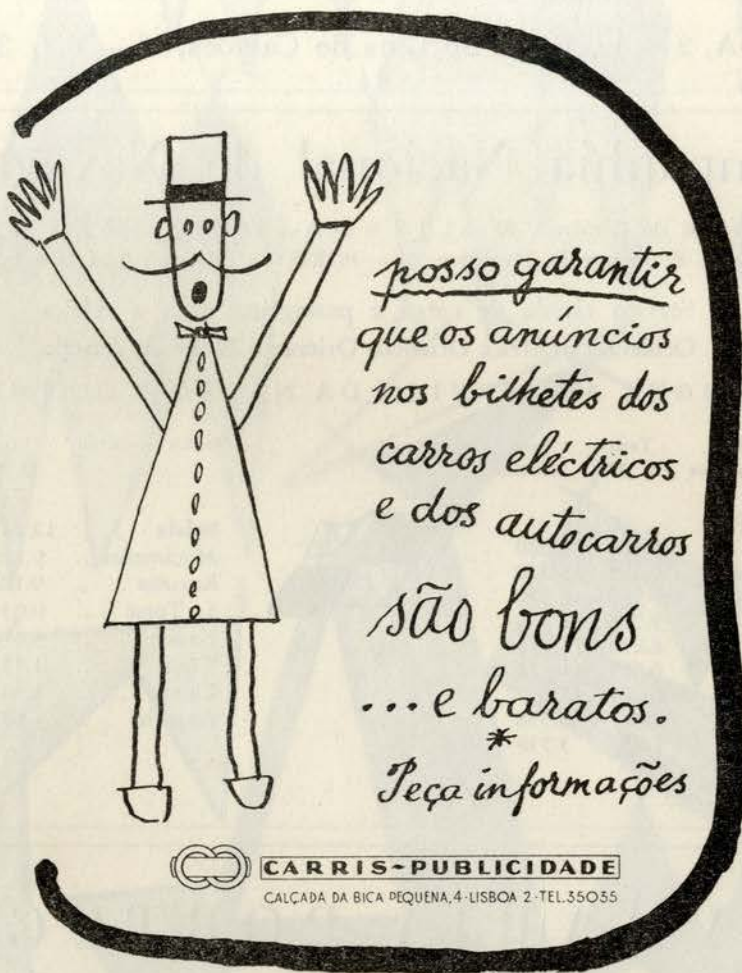 posso garantir
que os anúncios
nos bilhetes dos
carros eléctricos
e dos autocarros
são bons
... e baratos.
*
Peça informações
CARRIS-PUBLICIDADE
CALÇADA DA BICA PEQUENA, 4 · LISBOA 2 · TEL. 35035